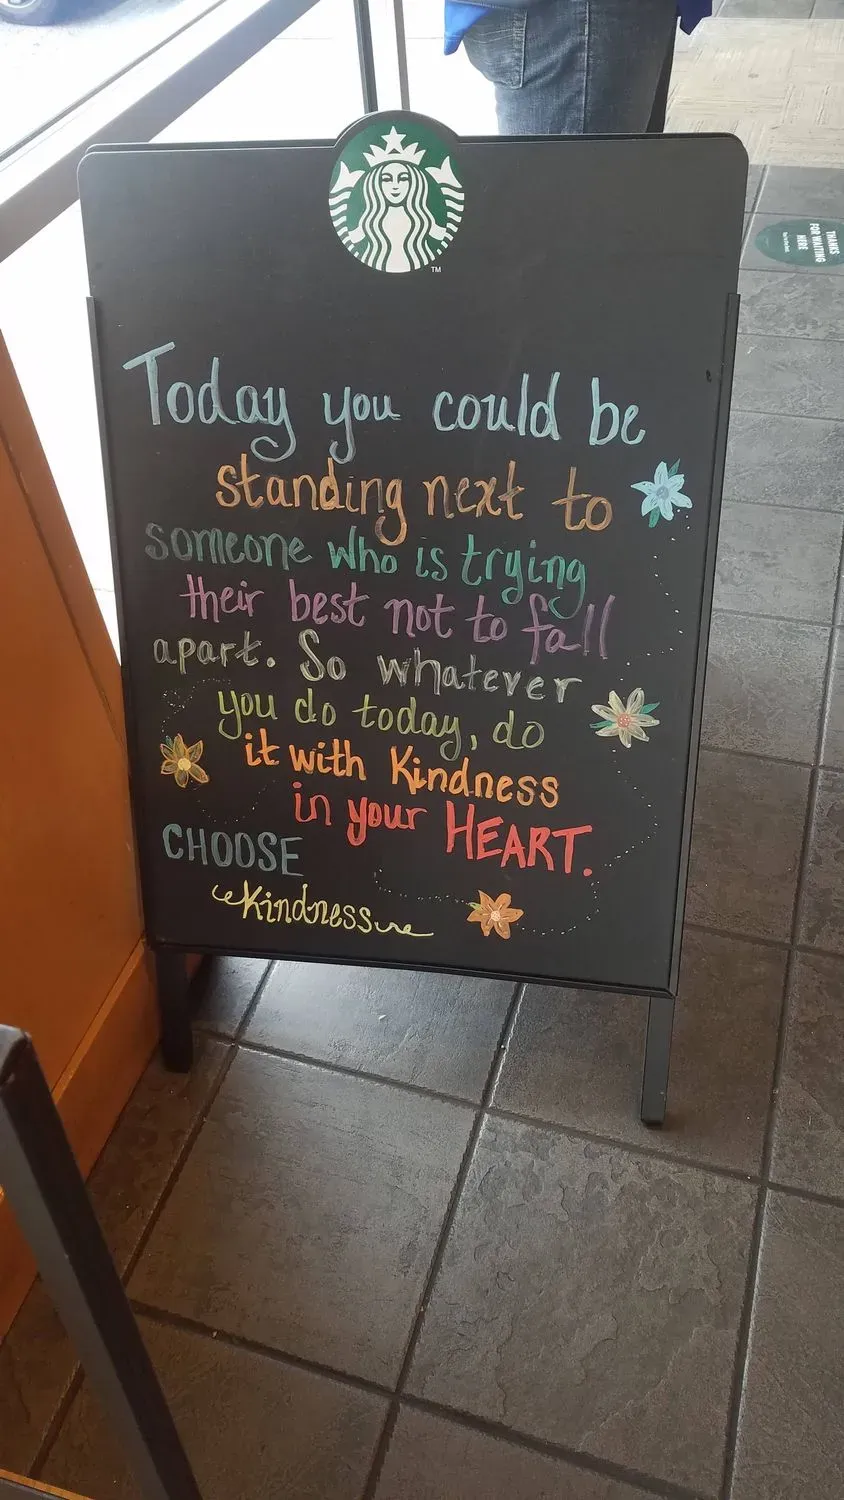 TM
THANKS
FOR WAITING
HERE
Today you could be
standing next to
someone who is trying
their best not to fall
apart. So whatever
you do today, do
it with Kindness
in your HEART.
CHOOSE
Kindness